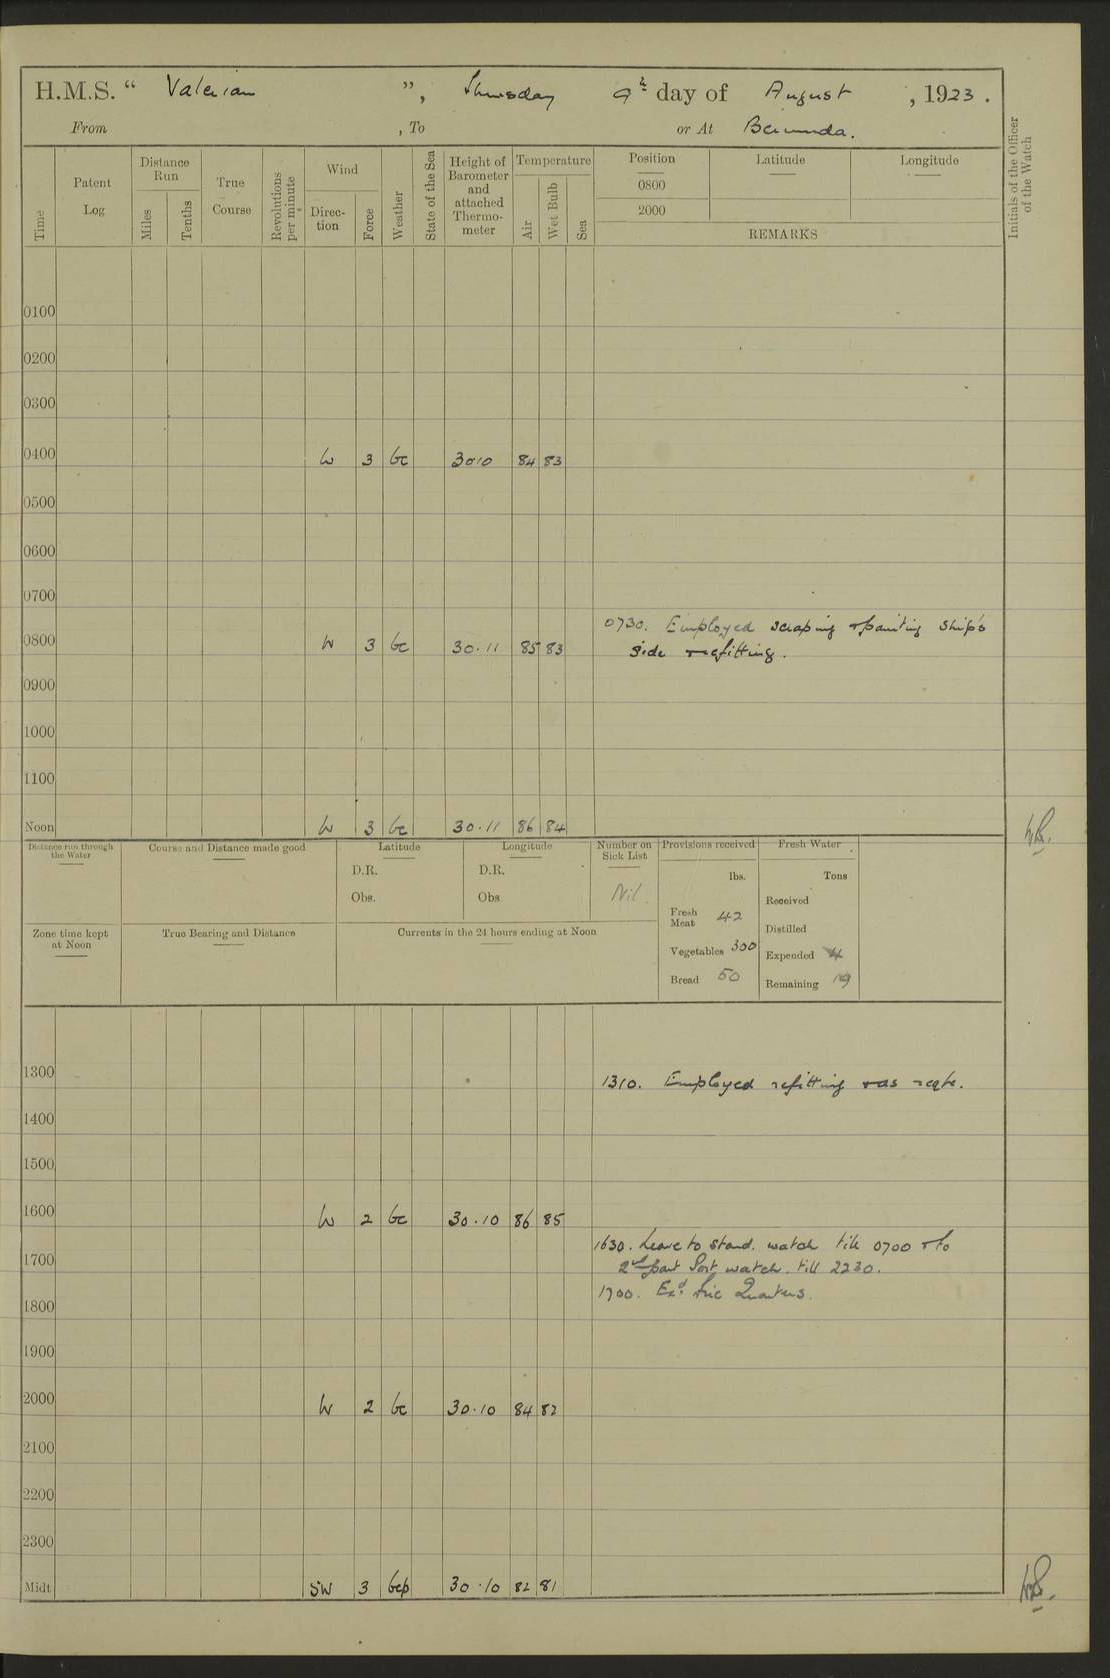 H.M.S. “ Valerian ”, Thursday 9th day of August , 1923.
From , To or At Bermuda.
Time
Patent Log
Distance Run
Miles
Tenths
True Course
Revolutions per minute
Wind
Direction
Force
Weather
State of the Sea
Height of Barometer and attached Thermometer
Temperature
Air
Wet Bulb
Sea
Position Latitude Longitude
0800
2000
REMARKS
Initials of the Officer of the Watch
0100
0200
0300
0400 W 3 bc 3010 84 83
0500
0600
0700
0730. Employed scraping & painting ship's
0800 W 3 bc 30.11 85 83 side & refitting.
0900
1000
1100
Noon W 3 bc 30.11 86 84
Distance run through the Water
Course and Distance made good
Latitude
D.R.
Obs.
Longitude
D.R.
Obs
Number on Sick List
Nil.
Provisions received
lbs.
Fresh Meat 42
Vegetables 300
Bread 50
Fresh Water
Tons
Received
Distilled
Expended 4
Remaining 19
Zone time kept at Noon
True Bearing and Distance
Currents in the 24 hours ending at Noon
1300 1310. Employed refitting & as reqte.
1400
1500
1600 W 2 bc 30.10 86 85
1630. Leave to Starbd. watch till 0700 & to
1700 2nd part Port watch till 2230.
1700. Exd. Fire Quarters.
1800
1900
2000 W 2 bc 30.10 84 82
2100
2200
2300
Midt SW 3 bcp 30.10 82 81